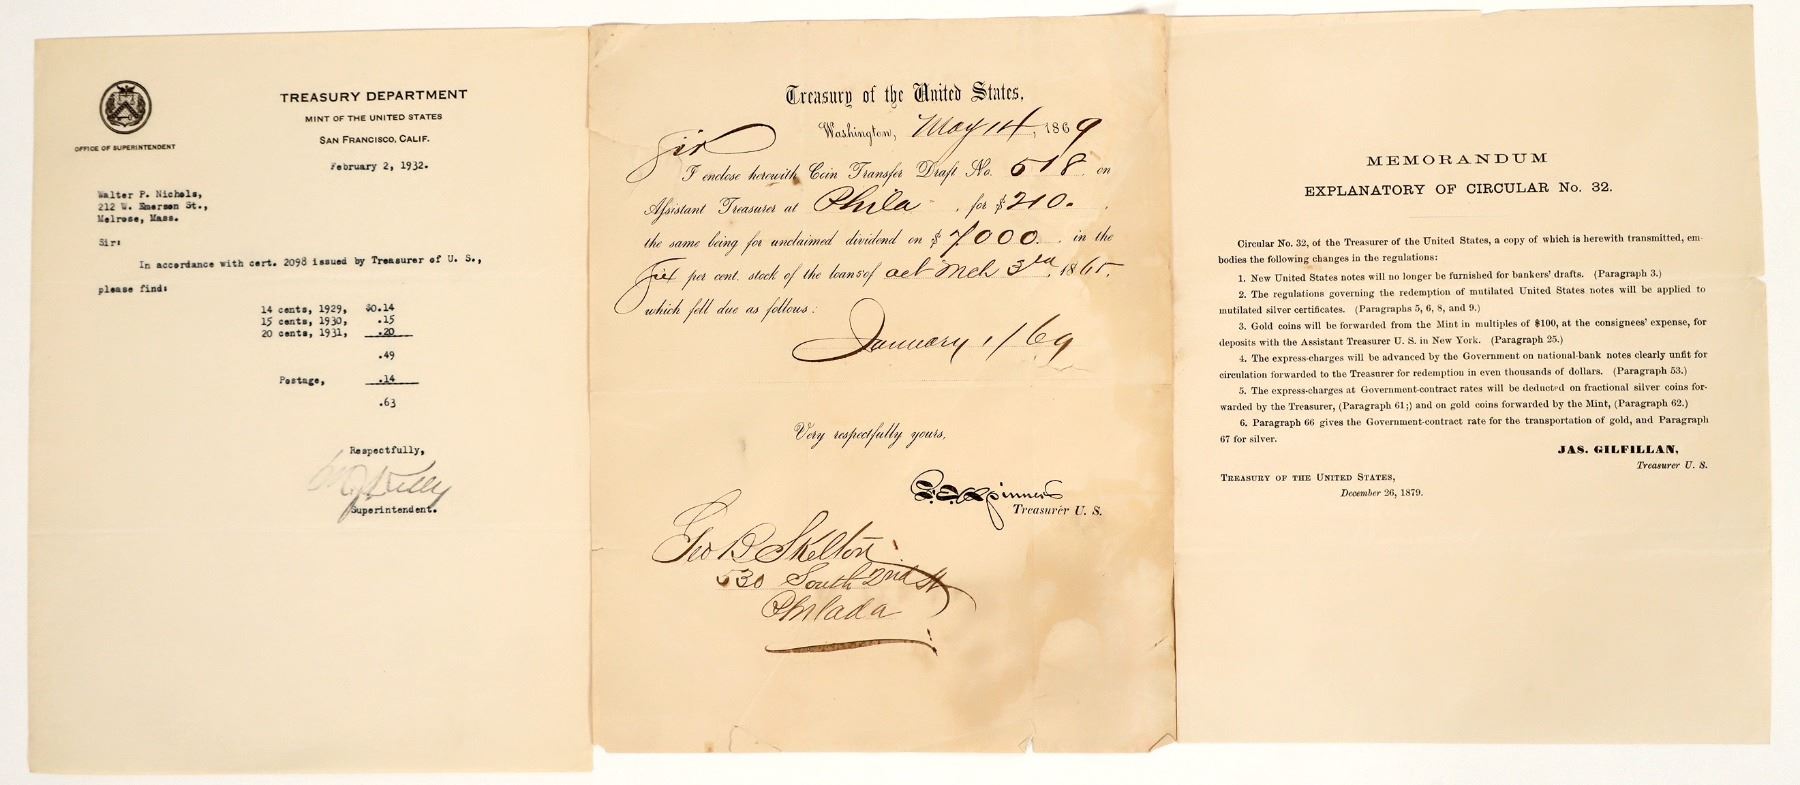 TREASURY DEPARTMENT
MINT OF THE UNITED STATES
SAN FRANCISCO, CALIF.
OFFICE OF SUPERINTENDENT
February 2, 1932.
Walter P. Nichols,
212 W. Emerson St.,
Melrose, Mass.
Sir:
In accordance with cert. 2098 issued by Treasurer of U. S.,
please find:
14 cents, 1929, $0.14
15 cents, 1930, .15
20 cents, 1931, .20
.49
Postage, .14
.63
Respectfully,
Superintendent.
Treasury of the United States,
Washington, May 14, 1869
Sir
I enclose herewith Coin Transfer Draft No. 518 on
Assistant Treasurer at Phila, for $210.
the same being for unclaimed dividend on $7000. in the
Six per cent. stock of the loans of act Mch 3rd, 1865.
which fell due as follows:
January 1/69
Very respectfully yours,
F. E. Spinner
Treasurer U. S.
Geo B Skelton
530 South 2nd St
Philada
MEMORANDUM
EXPLANATORY OF CIRCULAR No. 32.
Circular No. 32, of the Treasurer of the United States, a copy of which is herewith transmitted, em-
bodies the following changes in the regulations:
1. New United States notes will no longer be furnished for bankers' drafts. (Paragraph 3.)
2. The regulations governing the redemption of mutilated United States notes will be applied to
mutilated silver certificates. (Paragraphs 5, 6, 8, and 9.)
3. Gold coins will be forwarded from the Mint in multiples of $100, at the consignees' expense, for
deposits with the Assistant Treasurer U. S. in New York. (Paragraph 25.)
4. The express-charges will be advanced by the Government on national-bank notes clearly unfit for
circulation forwarded to the Treasurer for redemption in even thousands of dollars. (Paragraph 53.)
5. The express-charges at Government-contract rates will be deducted on fractional silver coins for-
warded by the Treasurer, (Paragraph 61;) and on gold coins forwarded by the Mint, (Paragraph 62.)
6. Paragraph 66 gives the Government-contract rate for the transportation of gold, and Paragraph
67 for silver.
JAS. GILFILLAN,
Treasurer U. S.
TREASURY OF THE UNITED STATES,
December 26, 1879.